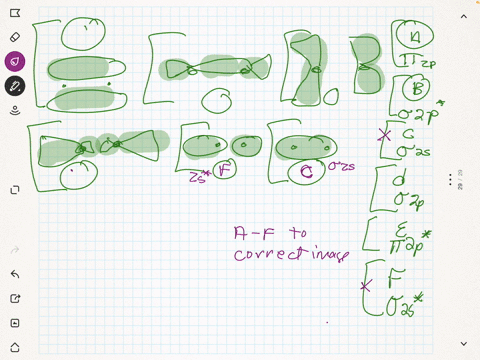 A
π2p
B
σ2p*
C
σ2s
d
σ2p
E
π2p*
F
σ2s*
2s* F
C σ2s
A-F to
correct image
29 / 69